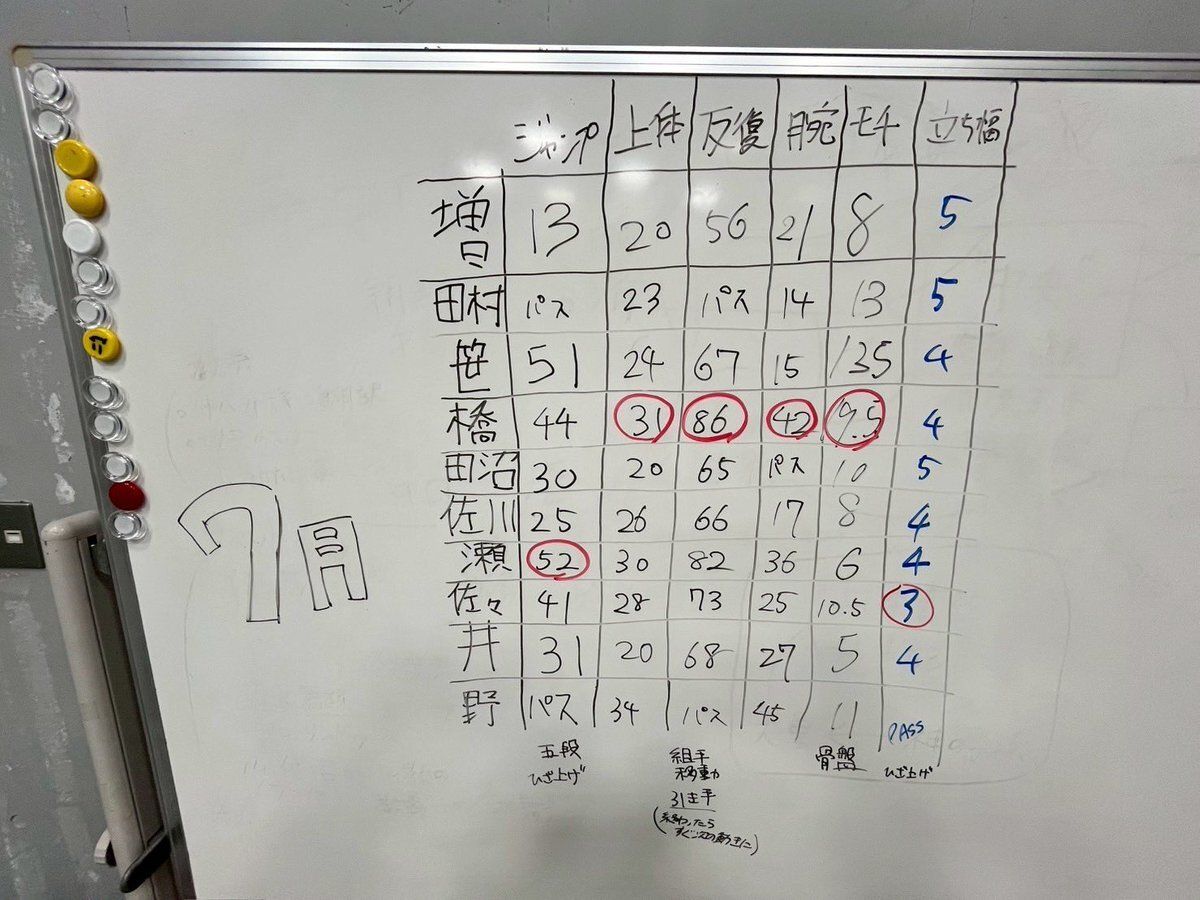 ジャンプ 上体 反復 腕 モチ 立ち幅
増 13 20 56 21 8 5
田村 パス 23 パス 14 13 5
笹 51 24 67 15 135 4
橋 44 31 86 42 9.5 4
田沼 30 20 65 パス 10 5
佐川 25 26 66 17 8 4
瀬 52 30 82 36 6 4
佐々 41 28 73 25 10.5 3
井 31 20 68 27 5 4
野 パス 34 パス 45 11 PASS
7月
五段 組手 骨盤 ひざ上げ
ひざ上げ 移動
(終わったら
すぐ次の動きに)